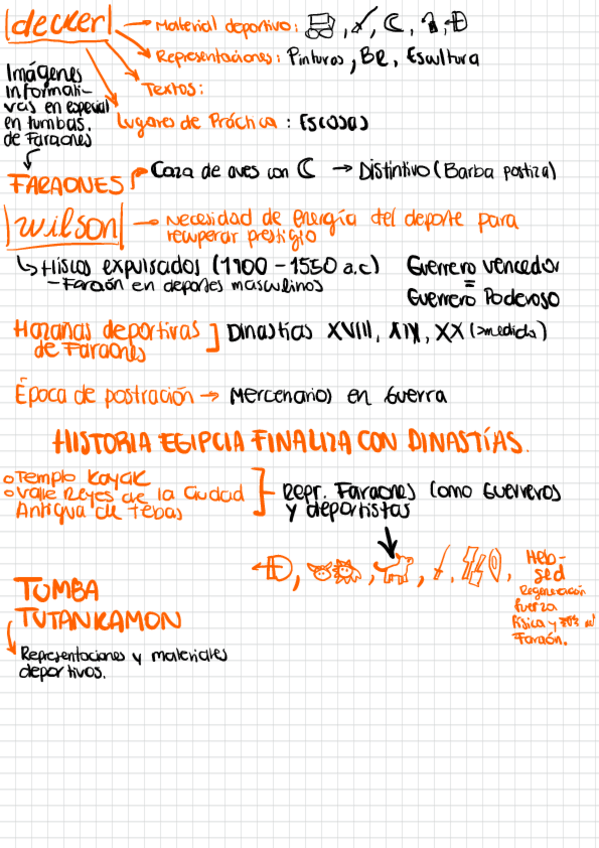 |decker| → Material deportivo:
→ Representaciones: Pinturas, BR, Escultura
→ Textos:
Imágenes
informati-
vas en especial
en tumbas.
de Faraones
Lugares de Práctica: Escasas
FARAONES
Caza de aves con → Distintivo (Barba postiza)
|wilson| → Necesidad de energía del deporte para
recuperar prestigio
↳ Hiscos expulsados (1700 - 1550 a.c)
- Faraón en deportes masculinos
Guerrero vencedor
=
Guerrero Poderoso
Hazañas deportivas
de Faraones
] Dinastías XVIII, XIX, XX (>medida)
Época de postración → Mercenarios en Guerra
HISTORIA EGIPCIA FINALIZA CON DINASTÍAS.
o Templo Kayak
o Valle Reyes de la Ciudad
Antigua de Tebas
Repr. Faraones como Guerreros
y deportistas
Heb-
sed
Regeneración
fuerza
física y
Faraón.
TUMBA
TUTANKAMON
Representaciones y materiales
deportivos.